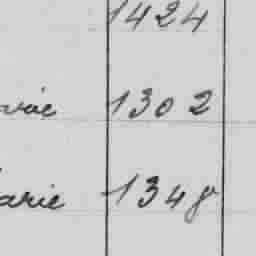 1424
1302
arie 1348